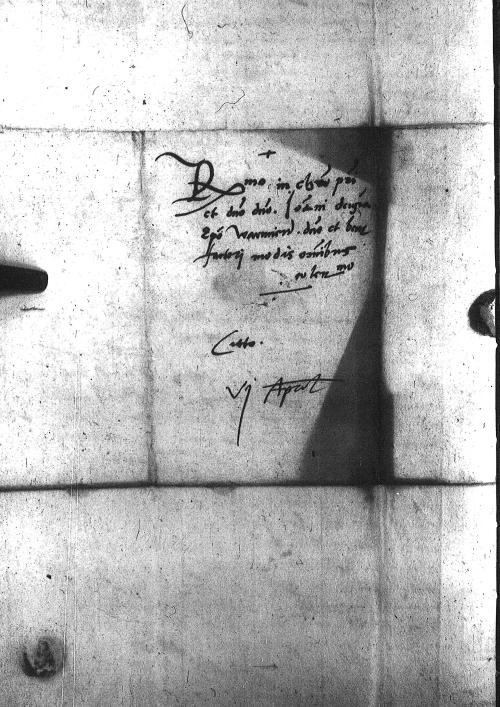 +
Rmo. in chro pri
et dno dno. Joanni dei gra
Epo varmien. dno et bene
factori modis omnibus
colen mo
Cito.
Vj April